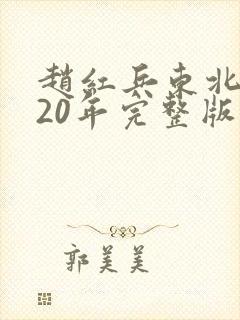 趙紅兵東北
20年完整版
郭美美